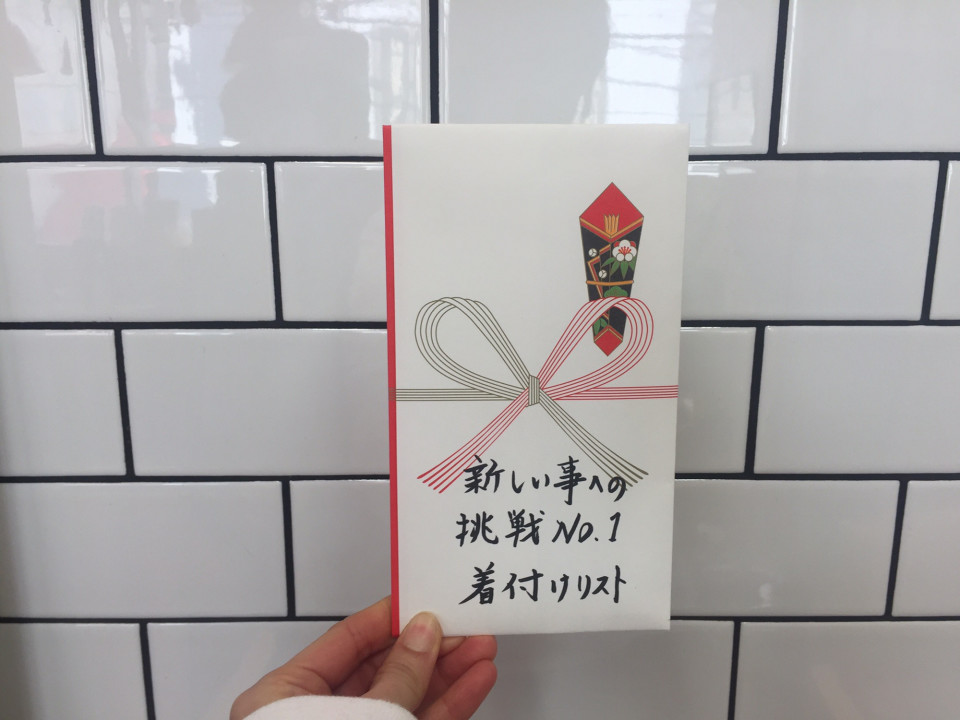 新しい事への
挑戦No.1
着付けリスト